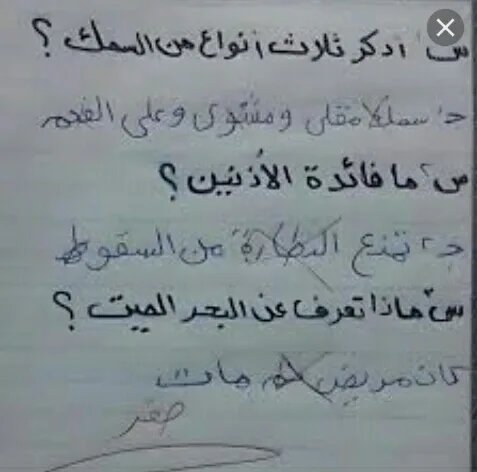 س١ أذكر ثلاث أنواع من السمك ؟
ج١ سمك مقلي ومشوي وعلى الفحم
س٢ ما فائدة الأذنين ؟
ج٢ تمنع النظارة من السقوط
س٣ ماذا تعرف عن البحر الميت ؟
كان مريض مات
صفر